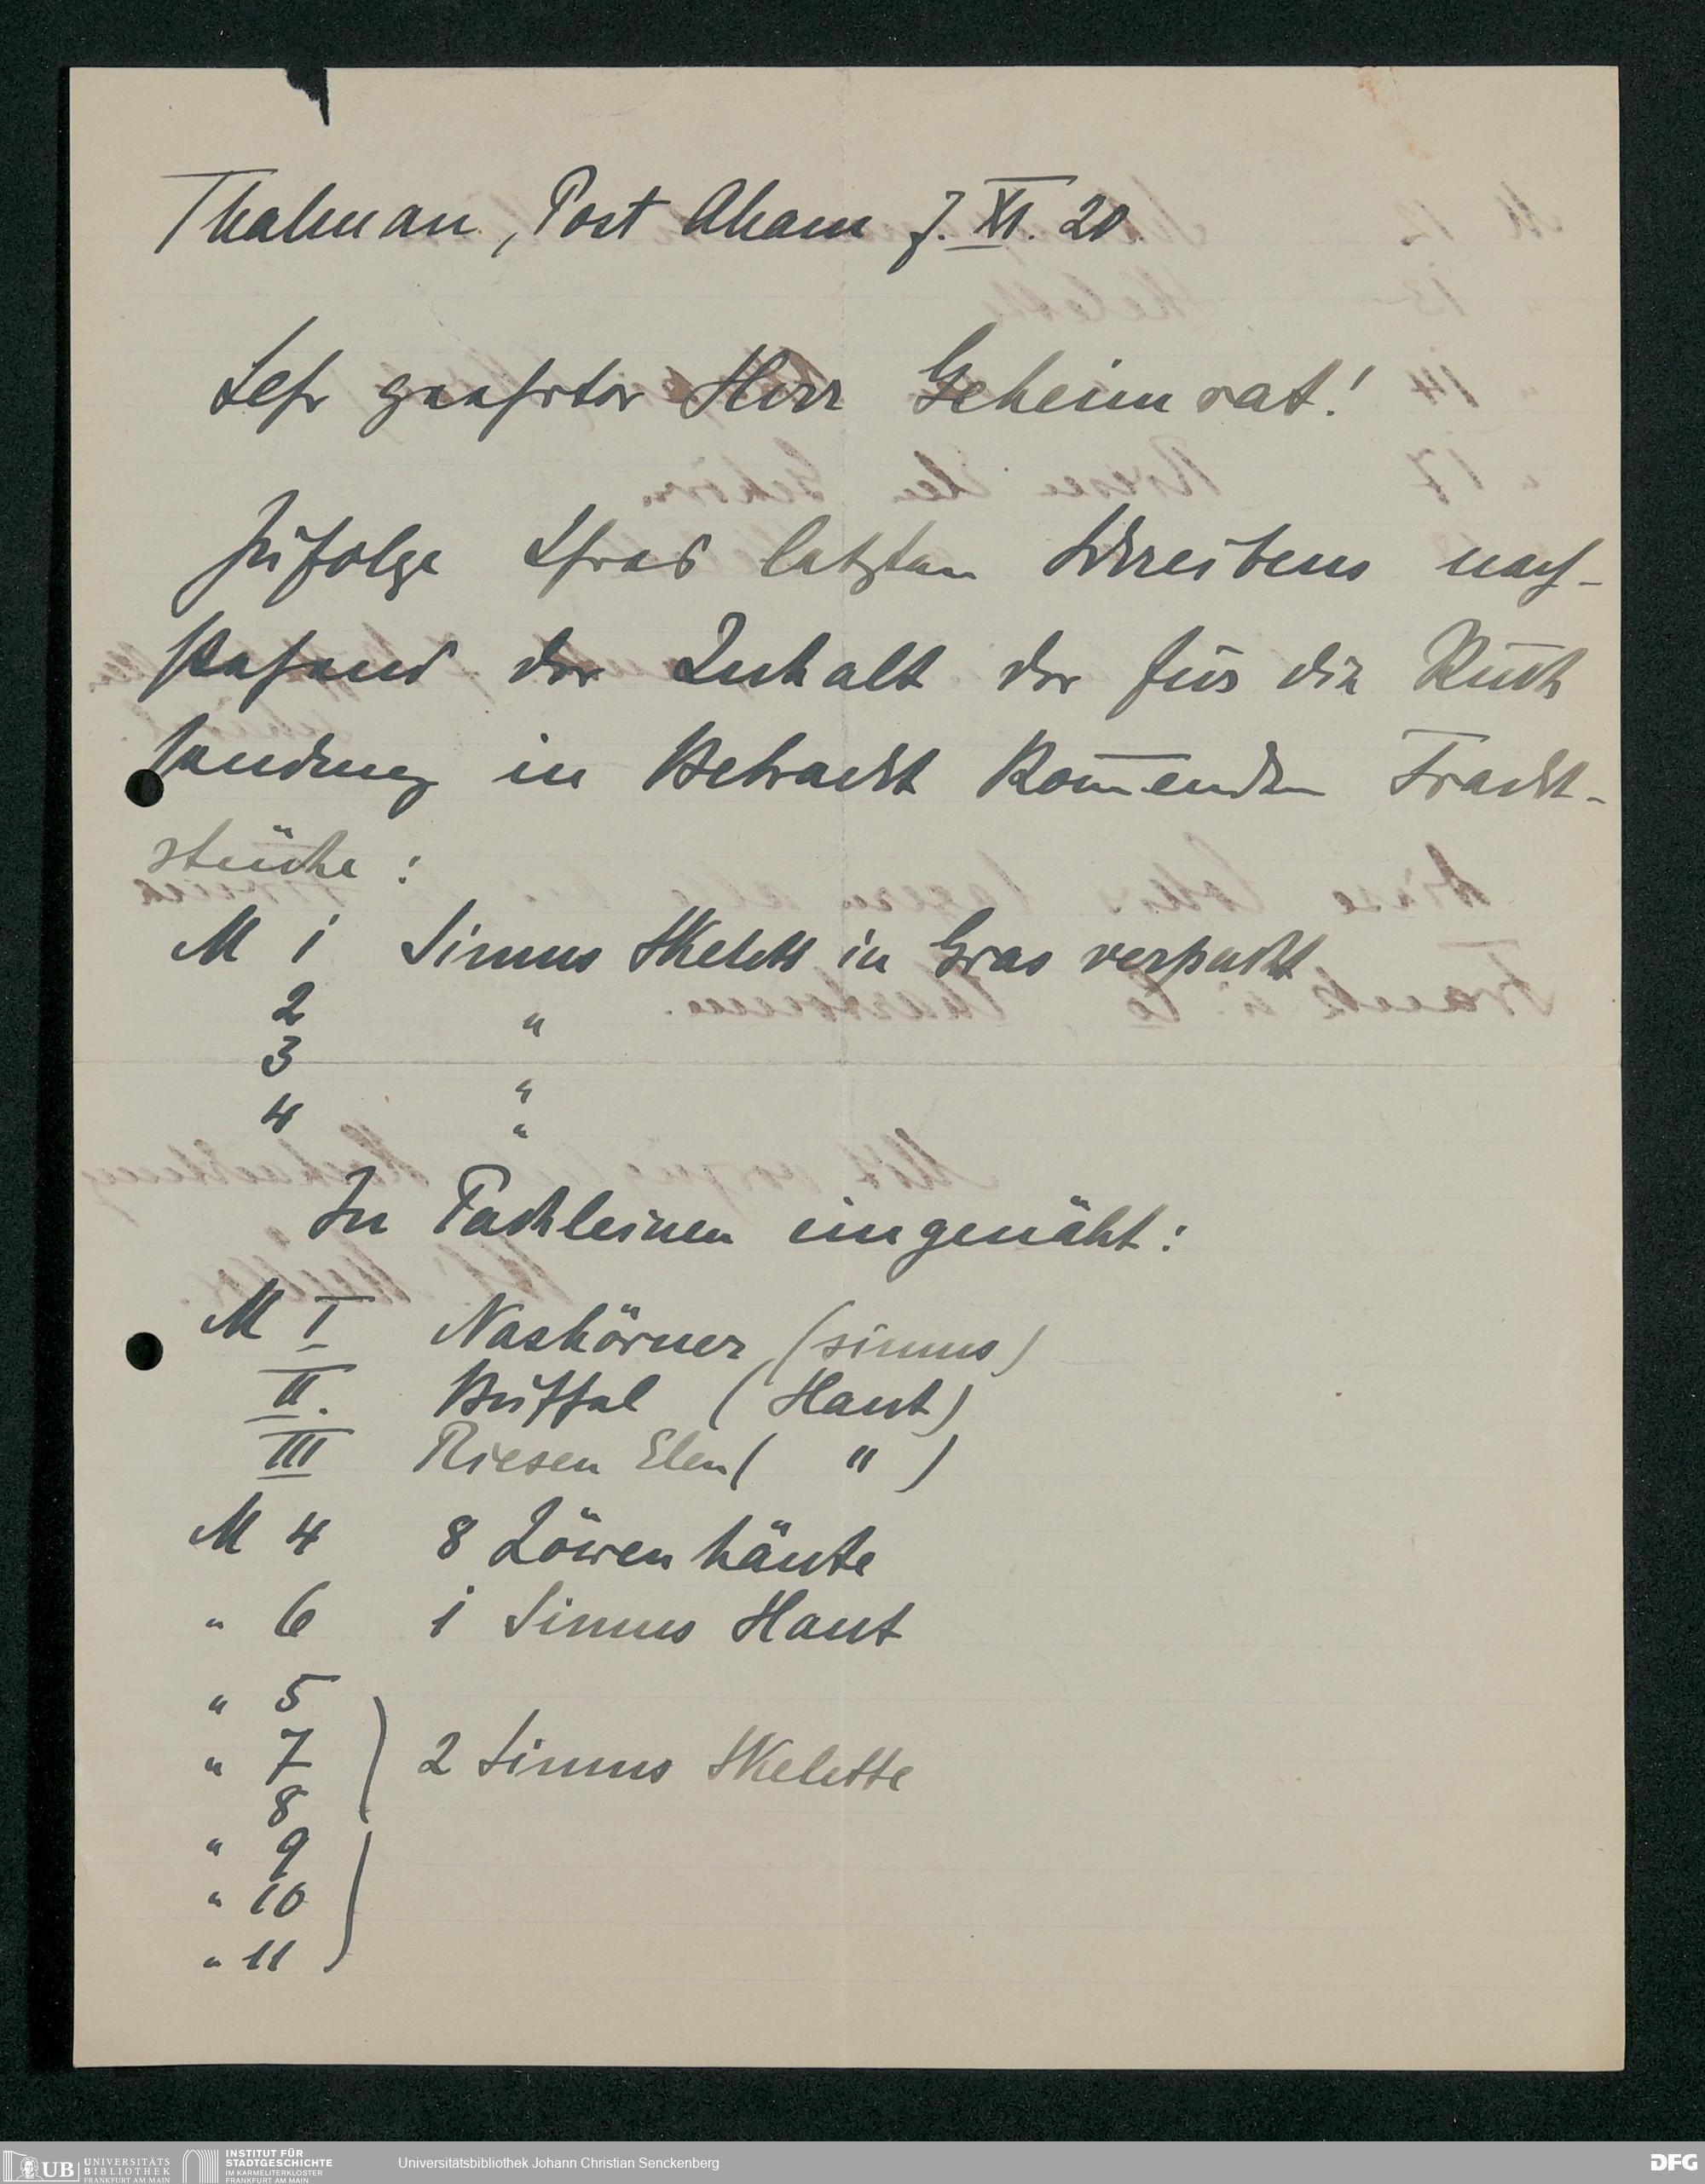 Thalman, Post Aham 7. XI. 20.
Sehr geehrter Herr Geheimrat!
Zufolge Ihres letzten Schreibens nach-
stehend der Inhalt der für die Rück
sendung in Betracht kom̅enden Fracht-
stücke :
M 1 Simus Skelett in Gras verpackt
2 "
3 "
4 "
In Packleinen eingenäht :
M I Nashörner (simus)
II. Büffel (Haut)
III Riesen Elen ( " )
M 4 8 Löwenhäute
" 6 1 Simus Haut
" 5
" 7 ) 2 Simus Skelette
8
" 9
" 10 )
" 11
UB UNIVERSITÄTS
BIBLIOTHEK
FRANKFURT AM MAIN
INSTITUT FÜR
STADTGESCHICHTE
IM KARMELITERKLOSTER
FRANKFURT AM MAIN
Universitätsbibliothek Johann Christian Senckenberg
DFG